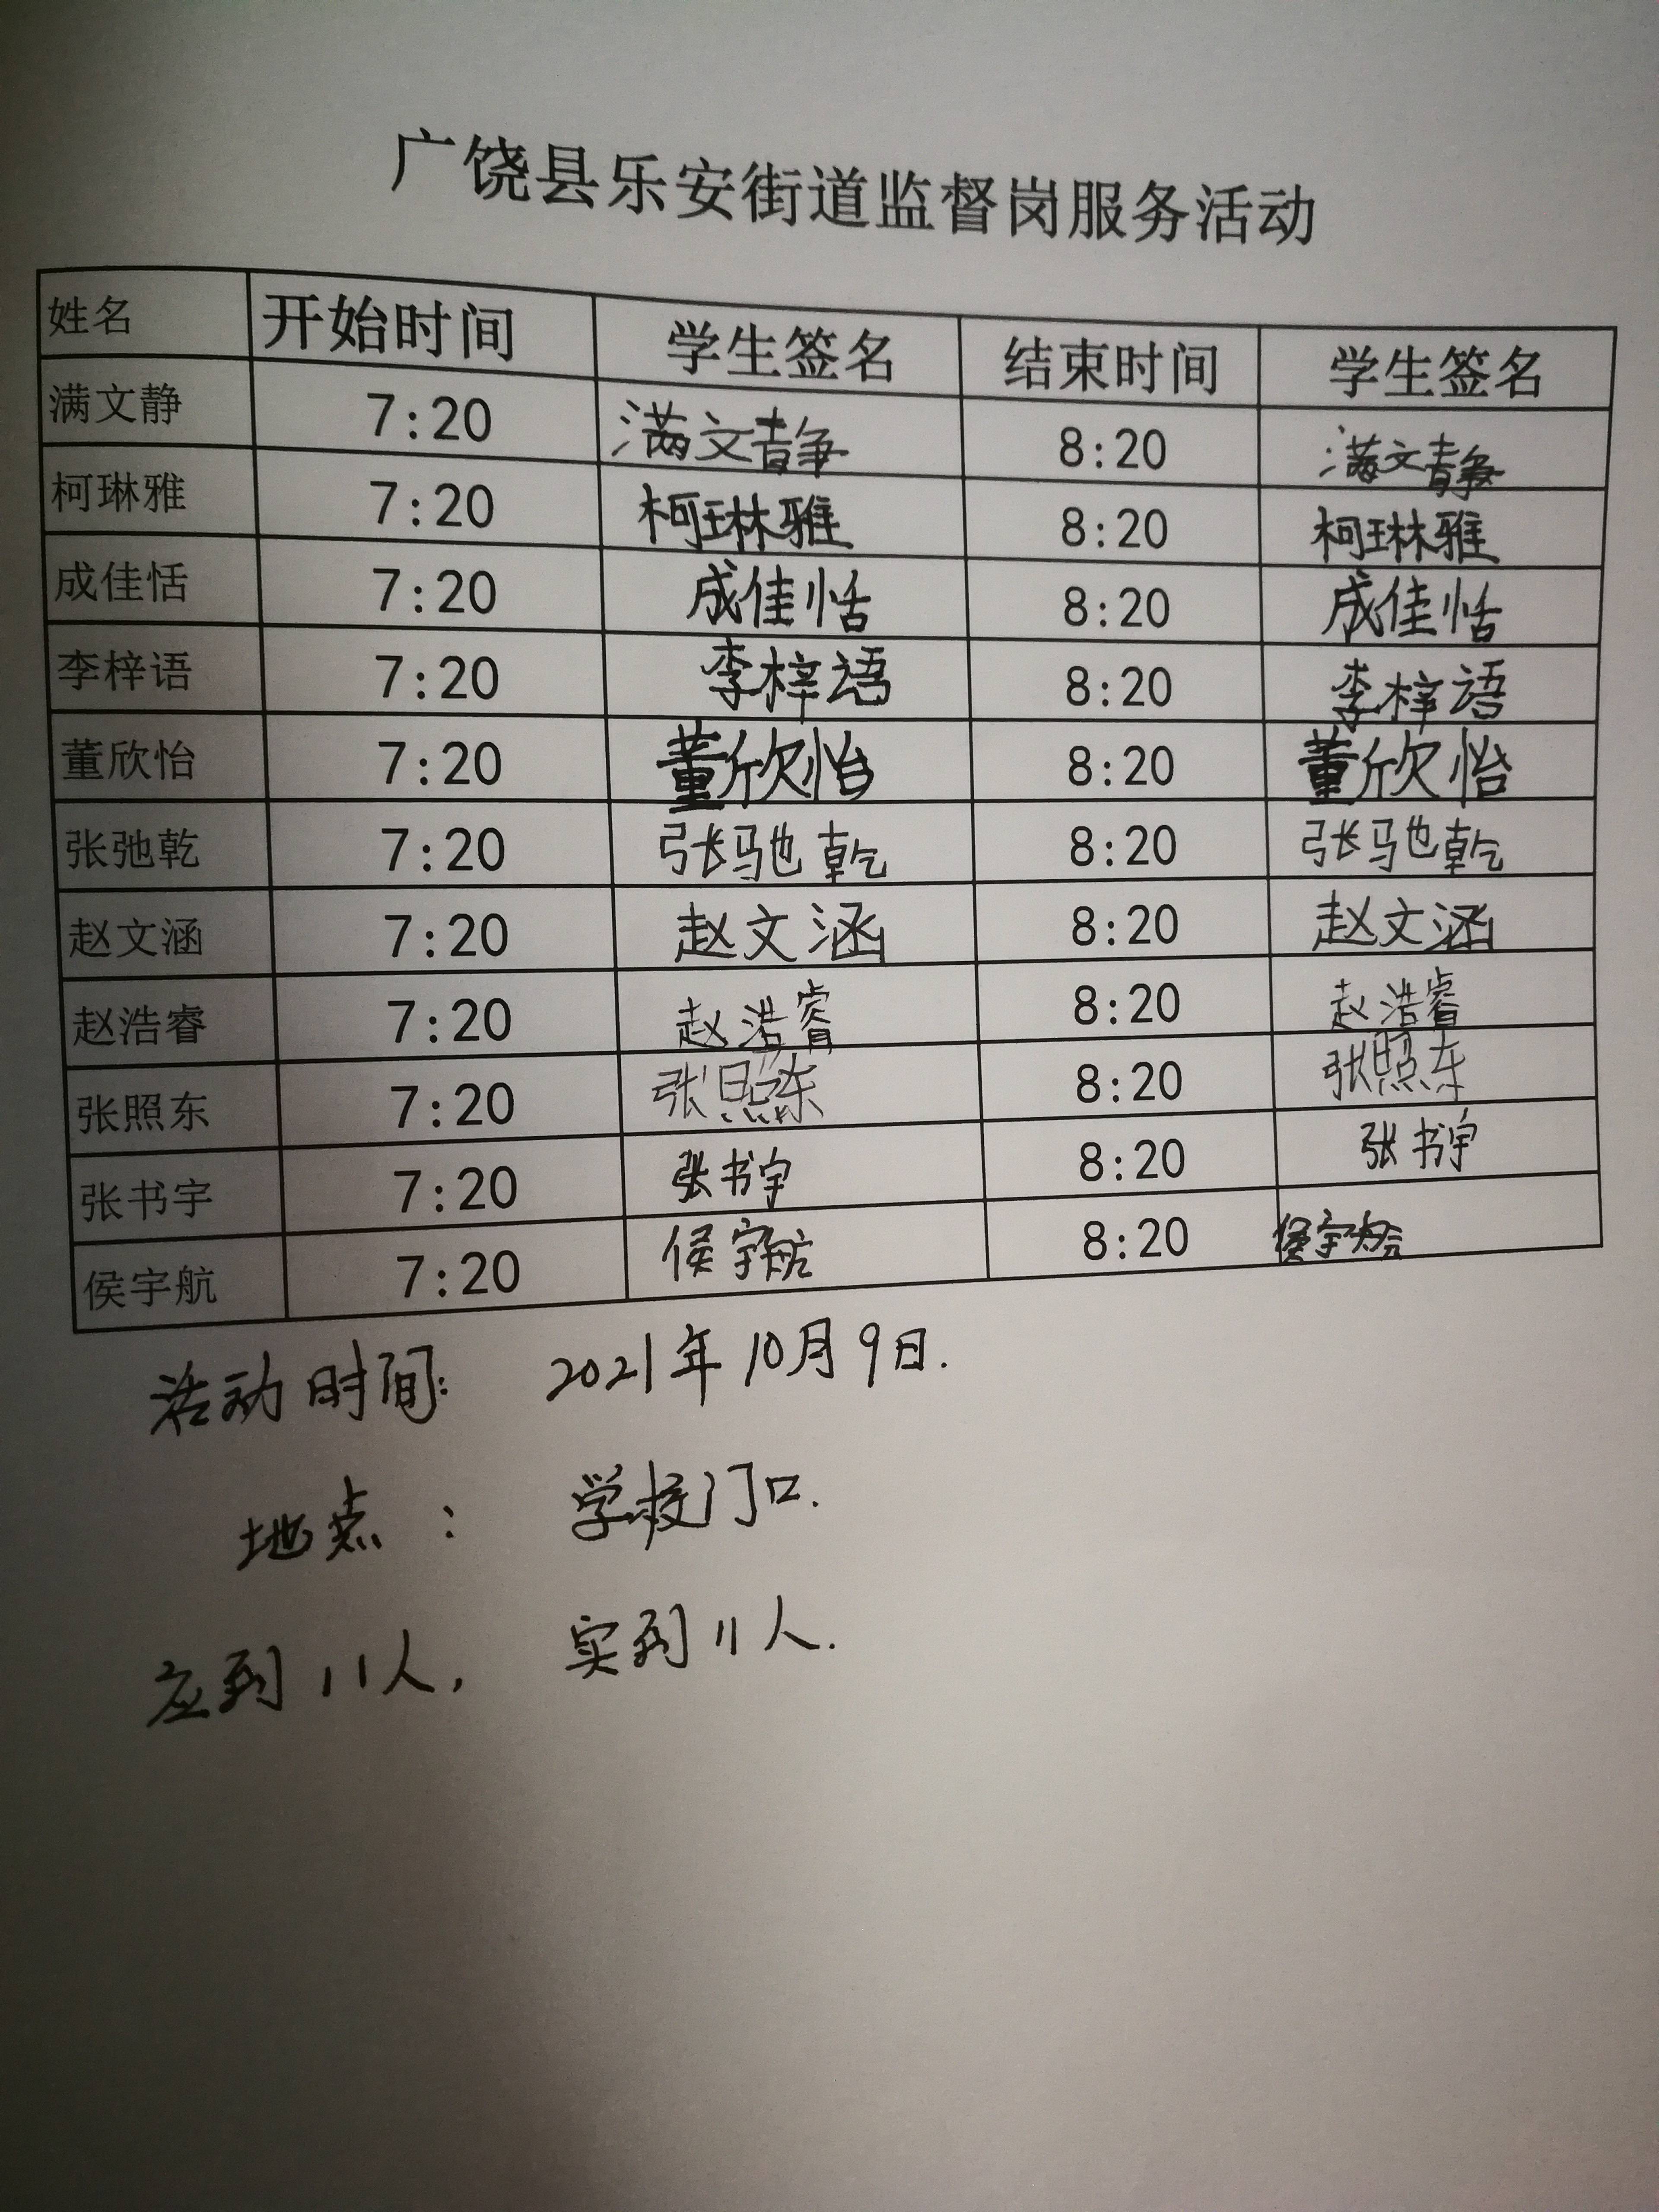 广饶县乐安街道监督岗服务活动
姓名 开始时间 学生签名 结束时间 学生签名
满文静 7:20 满文静 8:20 满文静
柯琳雅 7:20 柯琳雅 8:20 柯琳雅
成佳恬 7:20 成佳恬 8:20 成佳恬
李梓语 7:20 李梓语 8:20 李梓语
董欣怡 7:20 董欣怡 8:20 董欣怡
张弛乾 7:20 张驰乾 8:20 张驰乾
赵文涵 7:20 赵文涵 8:20 赵文涵
赵浩睿 7:20 赵浩睿 8:20 赵浩睿
张照东 7:20 张照东 8:20 张照东
张书宇 7:20 张书宇 8:20 张书宇
侯宇航 7:20 侯宇航 8:20 侯宇航
活动时间: 2021年10月9日.
地点: 学校门口.
应到11人, 实到11人.